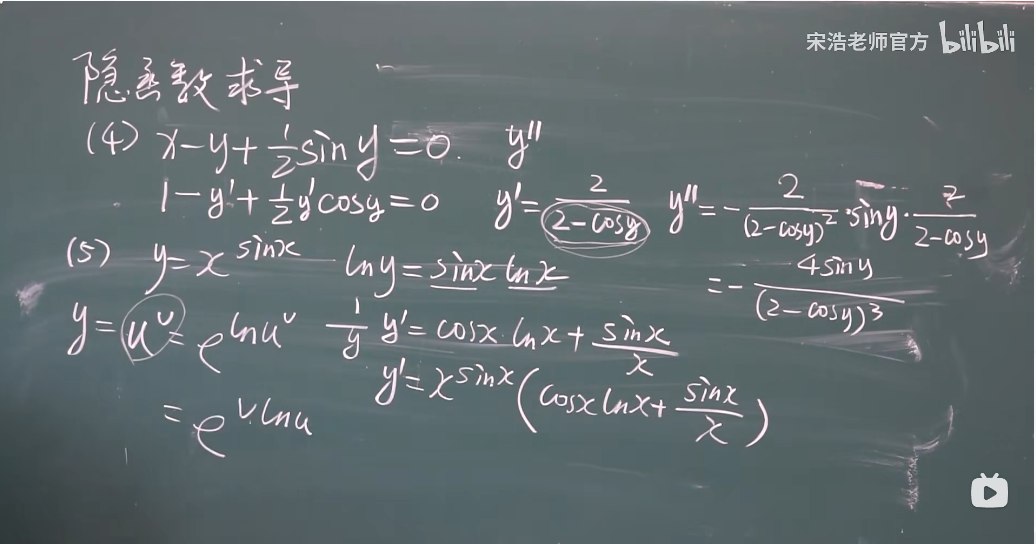 宋浩老师官方 bilibili
隐函数求导
(4) x-y+\frac{1}{2}siny=0. y''
1-y'+\frac{1}{2}y'cosy=0 y'=\frac{2}{2-cosy} y''=-\frac{2}{(2-cosy)^2}·siny·\frac{2}{2-cosy}
=-\frac{4siny}{(2-cosy)^3}
(5) y=x^{sinx} lny=sinx lnx
y=u^v=e^{lnu^v} \frac{1}{y}y'=cosx·lnx+\frac{sinx}{x}
=e^{v·lnu} y'=x^{sinx}(cosxlnx+\frac{sinx}{x})